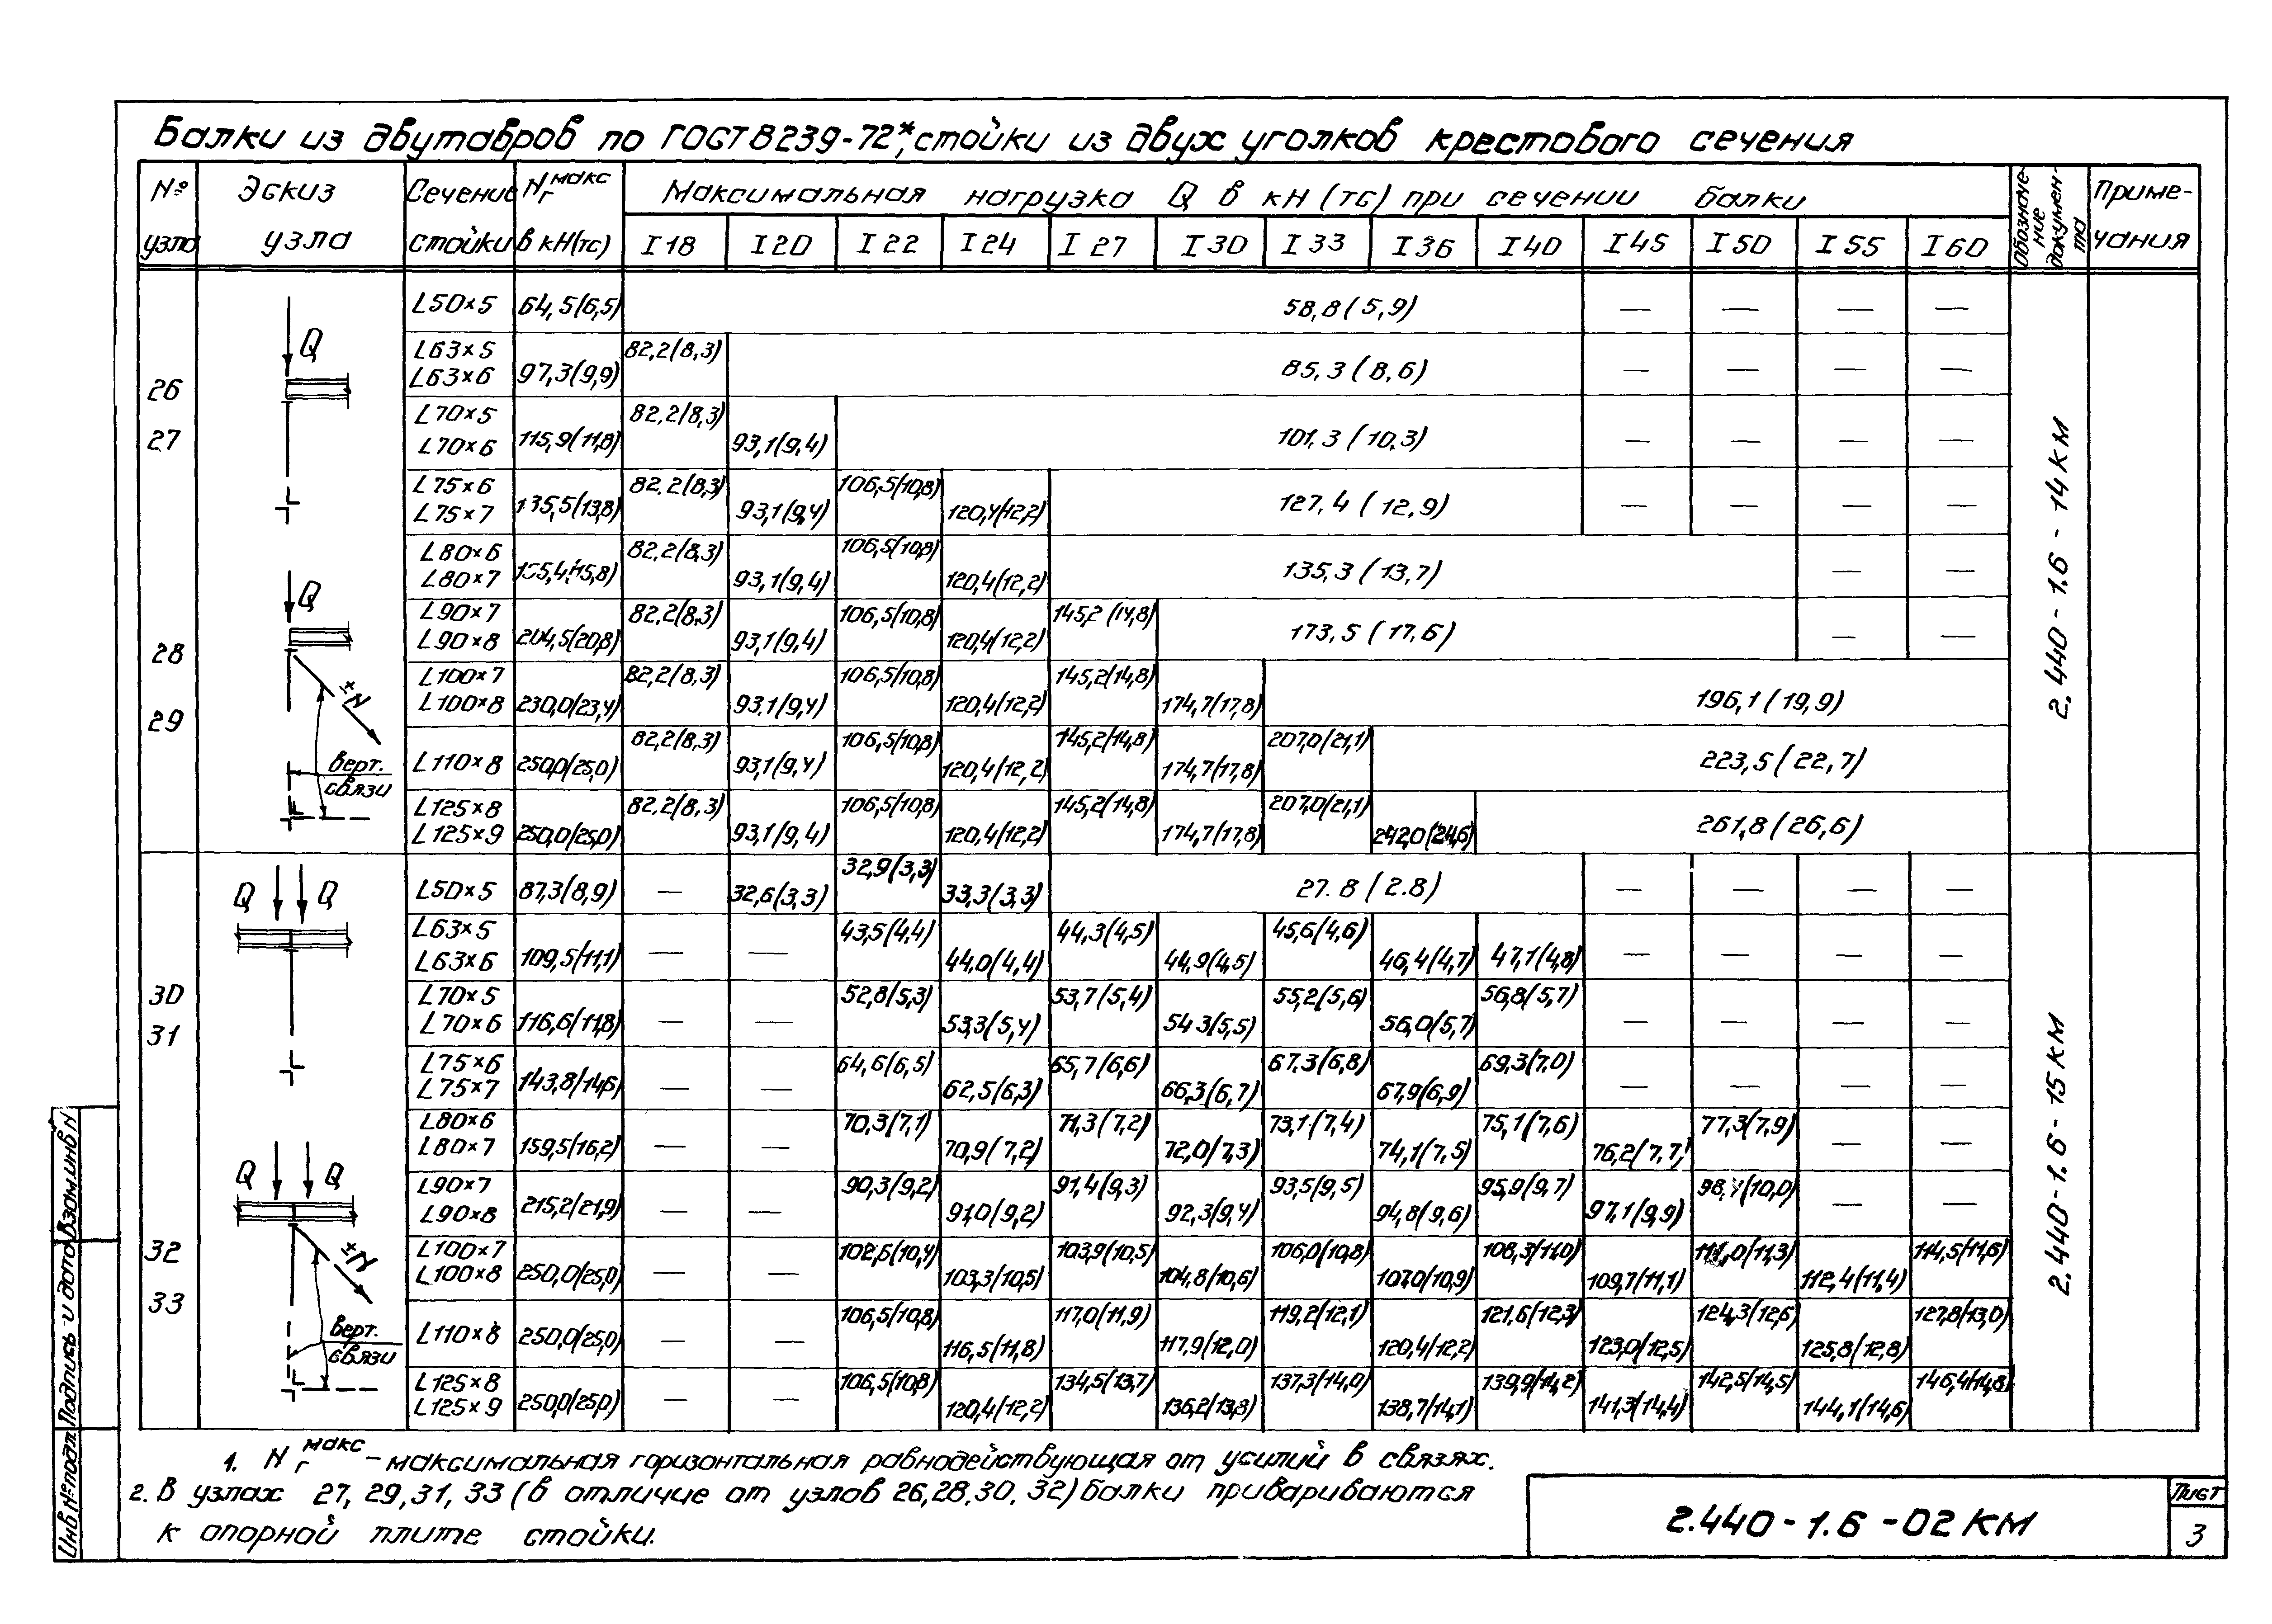 Балки из двутавров по ГОСТ 8239-72*, стойки из двух уголков крестового сечения
№ узла | Эскиз узла | Сечение стойки | Nг макс в кН(тс) | Максимальная нагрузка Q в кН (тс) при сечении балки | Обозначение документа | Примечания
I 18 | I 20 | I 22 | I 24 | I 27 | I 30 | I 33 | I 36 | I 40 | I 45 | I 50 | I 55 | I 60
26
27
28
29
Q
Q
±N
верт.
связи
L50×5 | 64,5(6,5) | 58,8(5,9) | — | — | — | —
L63×5 L63×6 | 97,3(9,9) | 82,2(8,3) | 85,3(8,6) | — | — | — | —
L70×5 L70×6 | 115,9(11,8) | 82,2(8,3) | 93,1(9,4) | 101,3(10,3) | — | — | — | —
L75×6 L75×7 | 135,5(13,8) | 82,2(8,3) | 93,1(9,4) | 106,5(10,8) | 120,4(12,2) | 127,4(12,9) | — | — | — | —
L80×6 L80×7 | 82,2(8,3) | 93,1(9,4) | 106,5(10,8) | 120,4(12,2) | 135,3(13,7) | — | —
L90×7 L90×8 | 204,5(20,8) | 82,2(8,3) | 93,1(9,4) | 106,5(10,8) | 120,4(12,2) | 145,2(14,8) | 173,5(17,6) | — | —
L100×7 L100×8 | 230,0(23,4) | 82,2(8,3) | 93,1(9,4) | 106,5(10,8) | 120,4(12,2) | 145,2(14,8) | 174,7(17,8) | 196,1(19,9)
L110×8 | 250,0(25,0) | 82,2(8,3) | 93,1(9,4) | 106,5(10,8) | 120,4(12,2) | 145,2(14,8) | 174,7(17,8) | 207,0(21,1) | 223,5(22,7)
L125×8 L125×9 | 250,0(25,0) | 82,2(8,3) | 93,1(9,4) | 106,5(10,8) | 120,4(12,2) | 145,2(14,8) | 174,7(17,8) | 207,0(21,1) | 242,0(24,6) | 261,8(26,6)
2.440-1.6-14КМ
30
31
32
33
Q Q
Q Q
±N
верт.
связи
L50×5 | 87,3(8,9) | — | 32,6(3,3) | 32,9(3,3) | 33,3(3,3) | 27.8(2.8) | — | — | — | —
L63×5 L63×6 | 109,5(11,1) | — | — | 43,5(4,4) | 44,0(4,4) | 44,3(4,5) | 44,9(4,5) | 45,6(4,6) | 46,4(4,7) | 47,1(4,8) | — | — | — | —
L70×5 L70×6 | 116,6(11,8) | — | — | 52,8(5,3) | 53,3(5,4) | 53,7(5,4) | 54 3(5,5) | 55,2(5,6) | 56,0(5,7) | 56,8(5,7) | — | — | — | —
L75×6 L75×7 | 143,8(14,6) | — | — | 64,6(6,5) | 62,5(6,3) | 65,7(6,6) | 66,3(6,7) | 67,3(6,8) | 67,9(6,9) | 69,3(7,0) | — | — | — | —
L80×6 L80×7 | 159,5(16,2) | — | — | 70,3(7,1) | 70,9(7,2) | 71,3(7,2) | 72,0(7,3) | 73,1(7,4) | 74,1(7,5) | 75,1(7,6) | 76,2(7,7) | 77,3(7,9) | — | —
L90×7 L90×8 | 215,2(21,9) | — | — | 90,3(9,2) | 91,0(9,2) | 91,4(9,3) | 92,3(9,4) | 93,5(9,5) | 94,8(9,6) | 95,9(9,7) | 97,1(9,9) | — | —
L100×7 L100×8 | 250,0(25,0) | — | — | 102,6(10,4) | 103,3(10,5) | 103,9(10,5) | 104,8(10,6) | 106,0(10,8) | 107,0(10,9) | 108,3(11,0) | 109,7(11,1) | 111,0(11,3) | 112,4(11,4) | 114,5(11,6)
L110×8 | 250,0(25,0) | — | — | 106,5(10,8) | 116,5(11,8) | 117,0(11,9) | 117,9(12,0) | 119,2(12,1) | 120,4(12,2) | 121,6(12,3) | 123,0(12,5) | 124,3(12,6) | 125,8(12,8) | 127,8(13,0)
L125×8 L125×9 | 250,0(25,0) | — | — | 106,5(10,8) | 120,4(12,2) | 134,5(13,7) | 136,2(13,8) | 137,3(14,0) | 138,7(14,1) | 139,9(14,2) | 141,3(14,4) | 142,5(14,5) | 144,1(14,6) | 146,4(14,8)
2.440-1.6-15КМ
1. Nг макс – максимальная горизонтальная равнодействующая от усилий в связях.
2. В узлах 27, 29, 31, 33 (в отличие от узлов 26, 28, 30, 32) балки привариваются
к опорной плите стойки.
2.440-1.6-02КМ
Лист
3
Взам.инв №
Подпись и дата
Инв.№подл.